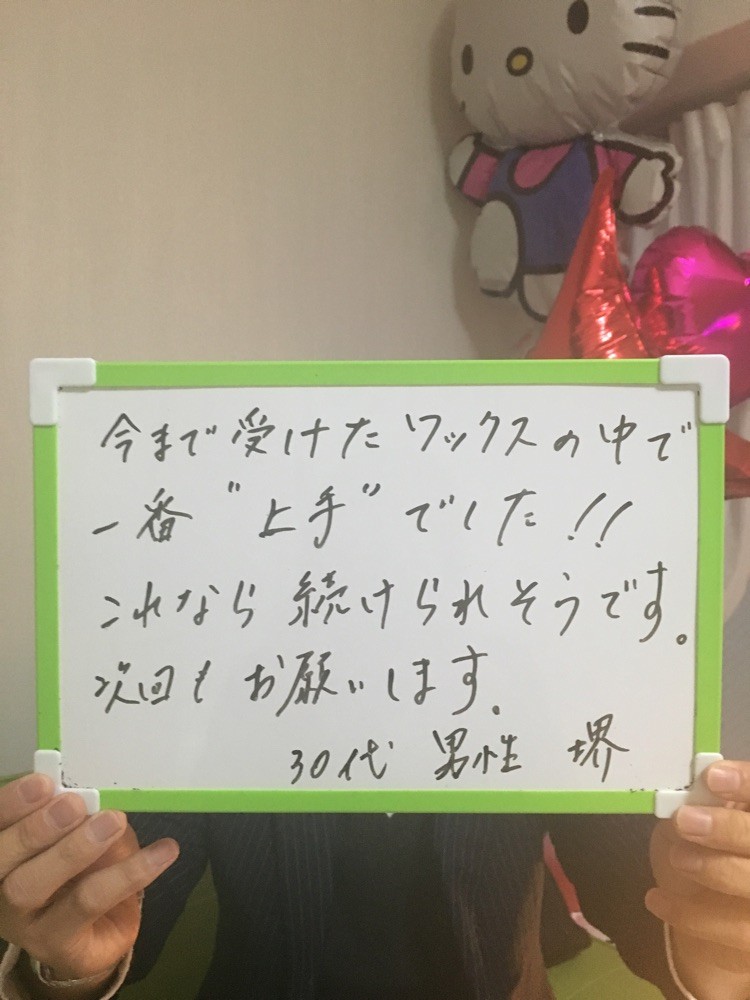 今まで受けたワックスの中で
一番"上手"でした!!
これなら続けられそうです。
次回もお願いします。
30代 男性 堺